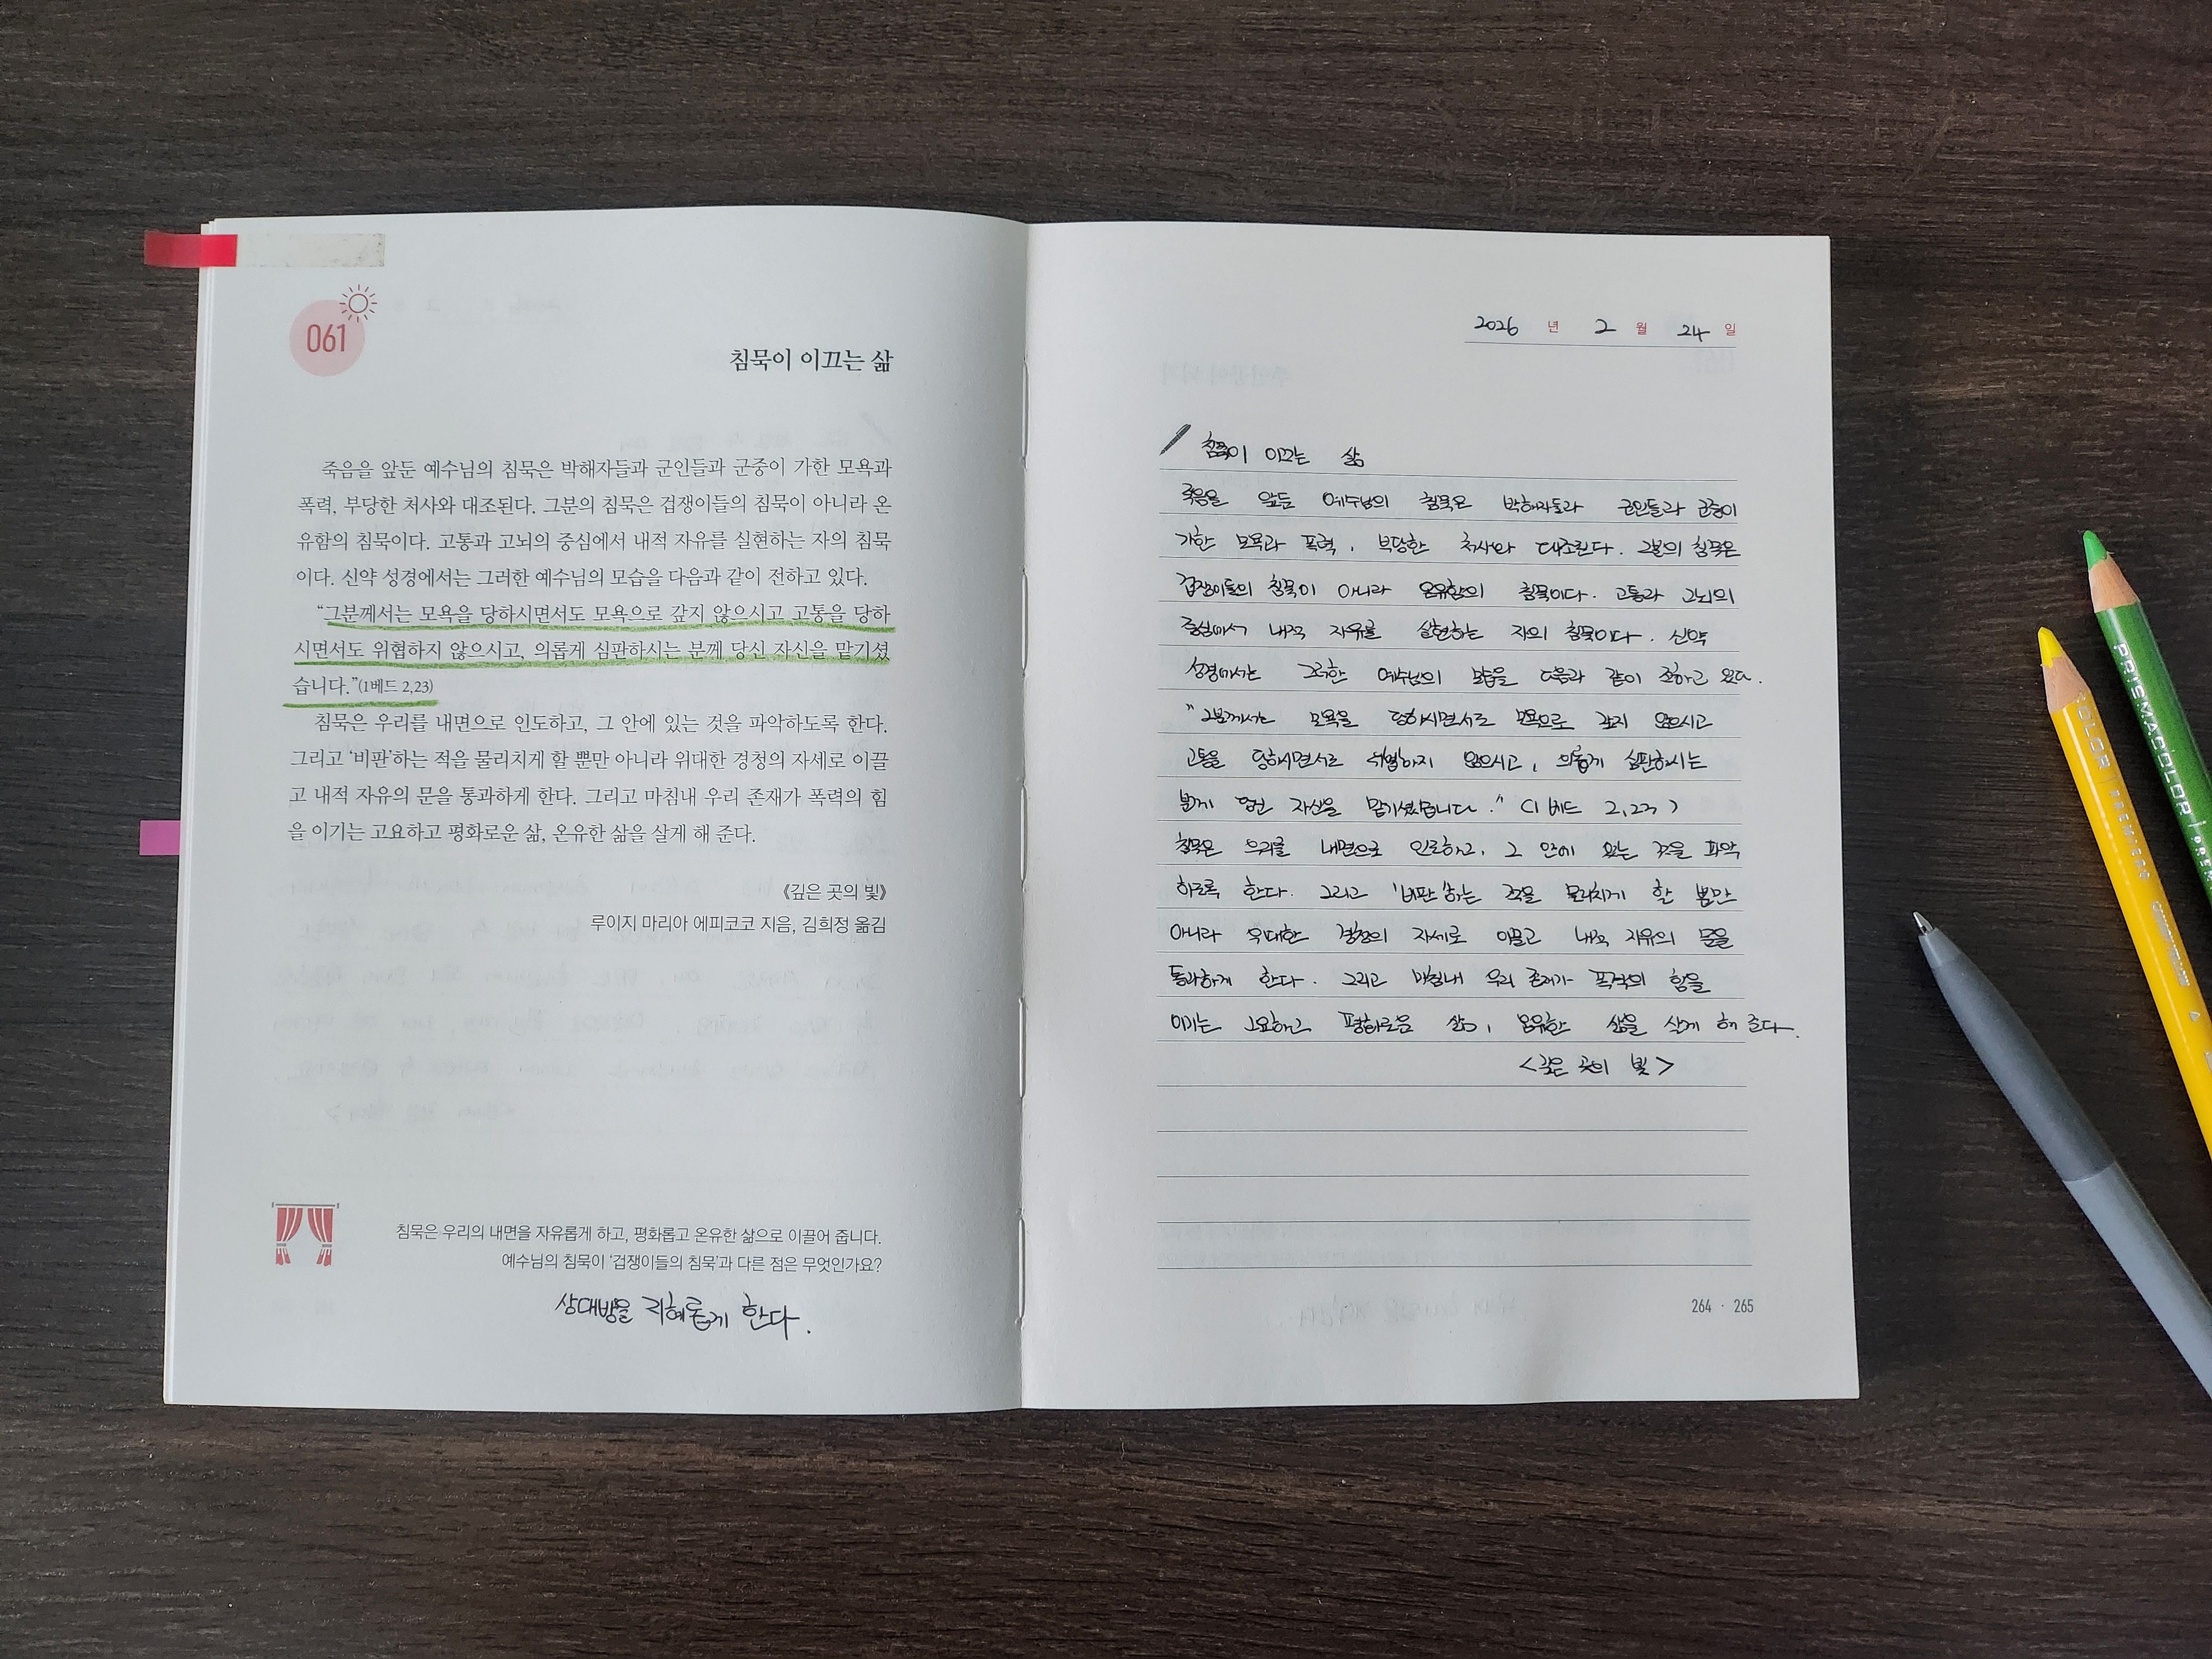 061
침묵이 이끄는 삶
죽음을 앞둔 예수님의 침묵은 박해자들과 군인들과 군중이 가한 모욕과
폭력, 부당한 처사와 대조된다. 그분의 침묵은 겁쟁이들의 침묵이 아니라 온
유함의 침묵이다. 고통과 고뇌의 중심에서 내적 자유를 실현하는 자의 침묵
이다. 신약 성경에서는 그러한 예수님의 모습을 다음과 같이 전하고 있다.
“그분께서는 모욕을 당하시면서도 모욕으로 갚지 않으시고 고통을 당하
시면서도 위협하지 않으시고, 의롭게 심판하시는 분께 당신 자신을 맡기셨
습니다.”(1베드 2,23)
침묵은 우리를 내면으로 인도하고, 그 안에 있는 것을 파악하도록 한다.
그리고 ‘비판’하는 적을 물리치게 할 뿐만 아니라 위대한 경청의 자세로 이끌
고 내적 자유의 문을 통과하게 한다. 그리고 마침내 우리 존재가 폭력의 힘
을 이기는 고요하고 평화로운 삶, 온유한 삶을 살게 해 준다.
《깊은 곳의 빛》
루이지 마리아 에피코코 지음, 김희정 옮김
침묵은 우리의 내면을 자유롭게 하고, 평화롭고 온유한 삶으로 이끌어 줍니다.
예수님의 침묵이 ‘겁쟁이들의 침묵’과 다른 점은 무엇인가요?
상대방을 지혜롭게 한다.
2026 년 2 월 24 일
침묵이 이끄는 삶
죽음을 앞둔 예수님의 침묵은 박해자들과 군인들과 군중이
가한 모욕과 폭력, 부당한 처사와 대조된다. 그분의 침묵은
겁쟁이들의 침묵이 아니라 온유함의 침묵이다. 고통과 고뇌의
중심에서 내적 자유를 실현하는 자의 침묵이다. 신약
성경에서는 그러한 예수님의 모습을 다음과 같이 전하고 있다.
"그분께서는 모욕을 당하시면서도 모욕으로 갚지 않으시고
고통을 당하시면서도 위협하지 않으시고, 의롭게 심판하시는
분께 당신 자신을 맡기셨습니다." (1베드 2,23)
침묵은 우리를 내면으로 인도하고, 그 안에 있는 것을 파악
하도록 한다. 그리고 '비판'하는 적을 물리치게 할 뿐만
아니라 위대한 경청의 자세로 이끌고 내적 자유의 문을
통과하게 한다. 그리고 마침내 우리 존재가 폭력의 힘을
이기는 고요하고 평화로운 삶, 온유한 삶을 살게 해 준다.
<깊은 곳의 빛>
264 · 265
PRISMACOLOR